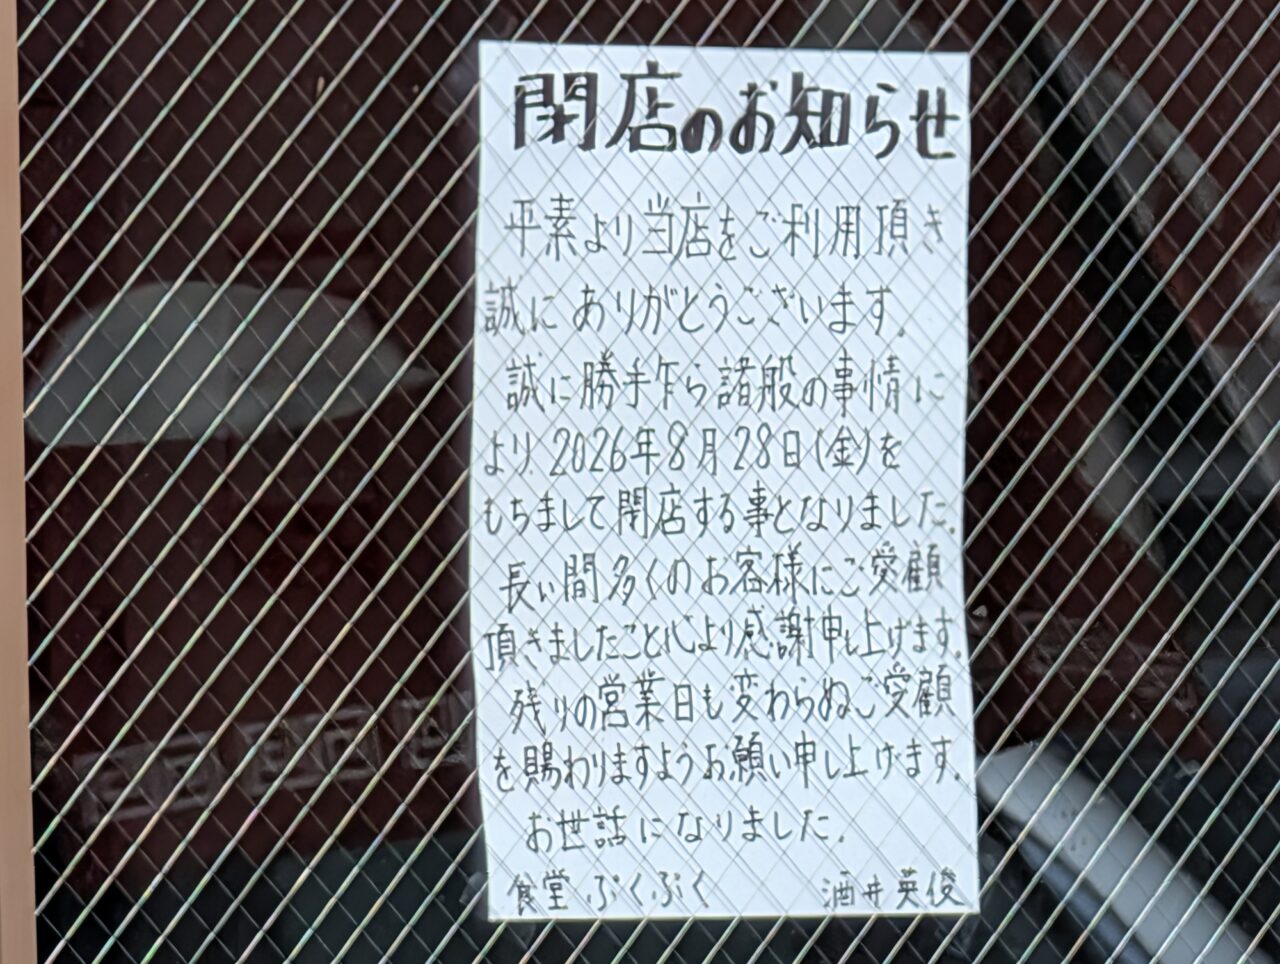 閉店のお知らせ
平素より当店をご利用頂き
誠にありがとうございます。
誠に勝手乍ら諸般の事情に
より、2026年8月28日(金)を
もちまして閉店する事となりました。
長い間多くのお客様にご愛顧
頂きましたこと心より感謝申し上げます。
残りの営業日も変わらぬご愛顧
を賜わりますようお願い申し上げます。
お世話になりました。
食堂 ぷくぷく 酒井英俊